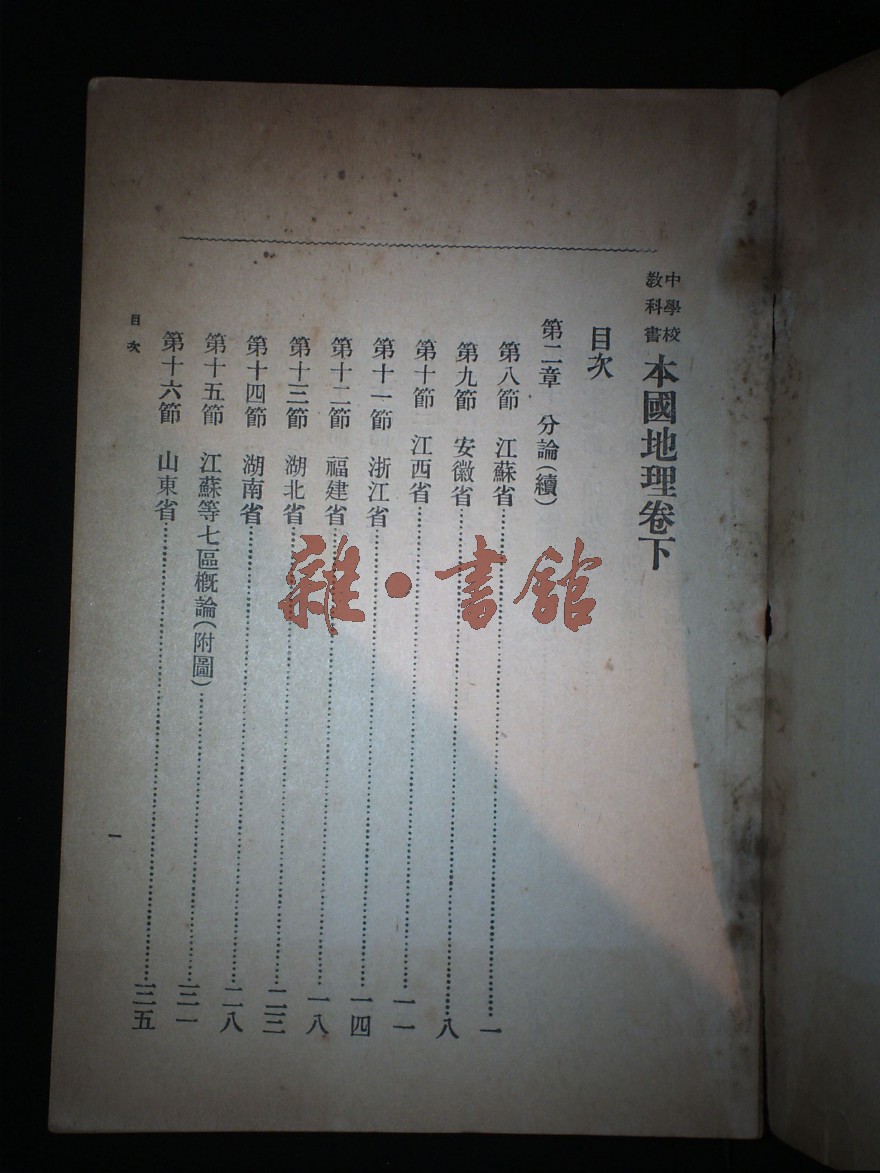 中學校
教科書
本國地理卷下
目次
第二章 分論(續)
第八節 江蘇省……一
第九節 安徽省……八
第十節 江西省……一一
第十一節 浙江省……一四
第十二節 福建省……一八
第十三節 湖北省……二三
第十四節 湖南省……二八
第十五節 江蘇等七區概論(附圖)……三一
第十六節 山東省……三五
目次
一
雜·書館